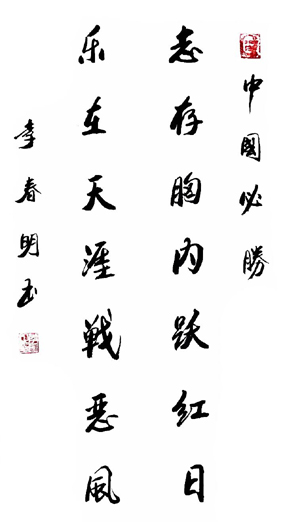 中國必勝
志存胸内跃红日
乐在天涯戰恶風
李春明书